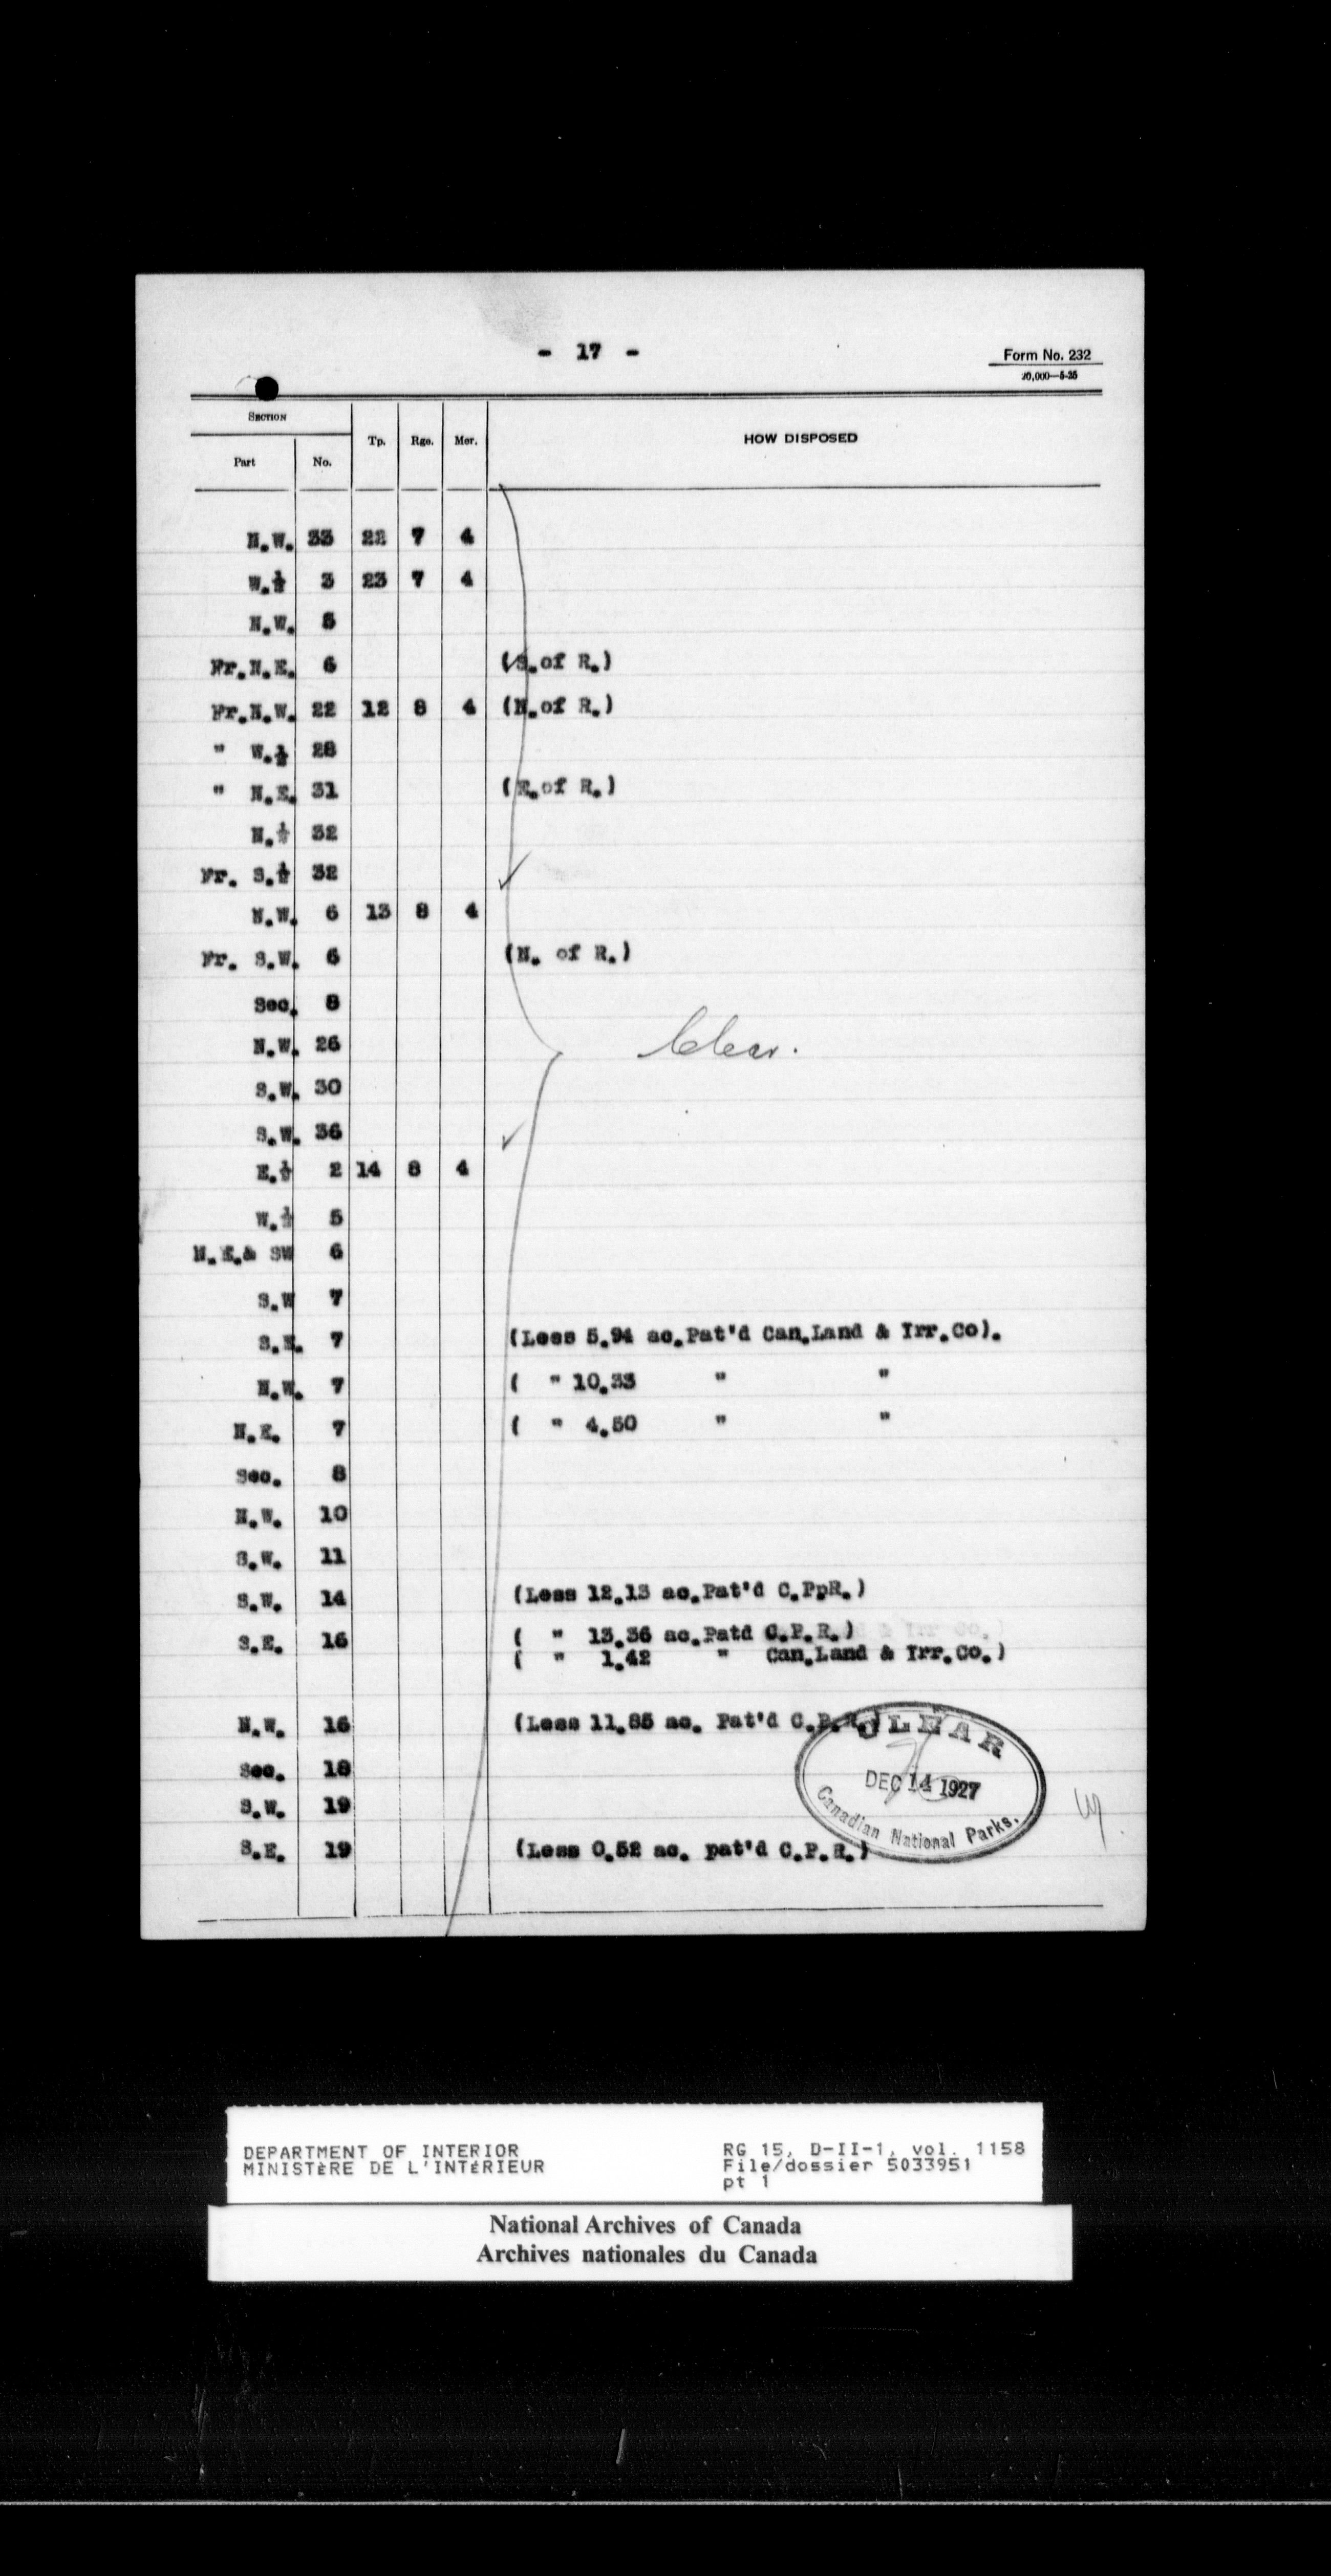 - 17 -
Form No. 232
20,000—5-25
SECTION
Part No. Tp. Rge. Mer. HOW DISPOSED
N.W. 33 22 7 4
W.½ 3 23 7 4
N.W. 5
Fr.N.E. 6 (S.of R.)
Fr.N.W. 22 12 8 4 (N.of R.)
" W.½ 28
" N.E. 31 (E.of R.)
N.½ 32
Fr. S.½ 32
N.W. 6 13 8 4
Fr. S.W. 6 (N. of R.)
Sec. 8
N.W. 26
Clear.
S.W. 30
S.W. 36
E.½ 2 14 8 4
W.½ 5
N.E.& SW 6
S.W 7
S.E. 7 (Less 5.94 ac.Pat'd Can.Land & Irr.Co).
N.W. 7 ( " 10.33 " "
N.E. 7 ( " 4.50 " "
Sec. 8
N.W. 10
S.W. 11
S.W. 14 (Less 12.13 ac.Pat'd C.PpR.)
S.E. 16 ( " 13.36 ac.Patd C.P.R.)
( " 1.42 " Can.Land & Irr.Co.)
N.W. 16 (Less 11.85 ac. Pat'd C.P.R.)
CLEAR
Sec. 18
DEC 14 1927
S.W. 19
Canadian National Parks.
S.E. 19 (Less 0.52 ac. pat'd C.P.R.)
DEPARTMENT OF INTERIOR
MINISTÈRE DE L'INTÉRIEUR
RG 15, D-II-1, vol. 1158
File/dossier 5033951
pt 1
National Archives of Canada
Archives nationales du Canada